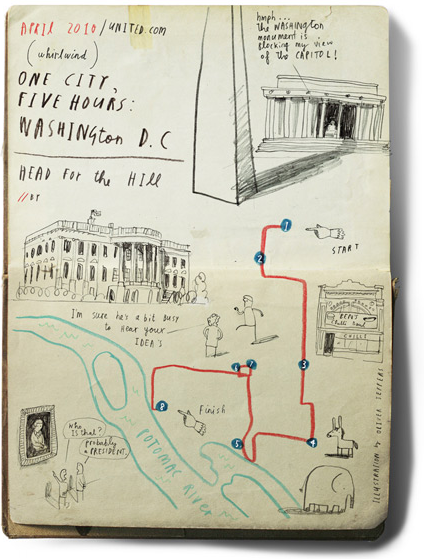 APRIL 2010/UNITED.COM
(whirlwind)
ONE CITY,
FIVE HOURS:
WASHINGton D.C
HEAD FOR the HILL
//BY
hmph...
the WASHINGton
monument is
blocking my view
of the CAPITOL!
1
START
2
I'm sure he's a bit busy
to Hear your
IDEA'S
BEN'S
Chili Bowl
CHILI
3
6
7
8
Finish
5
4
Who
IS that?
probably
a PRESIDENT.
POTOMAC RIVER
ILLUSTRATION by OLIVER JEFFERS